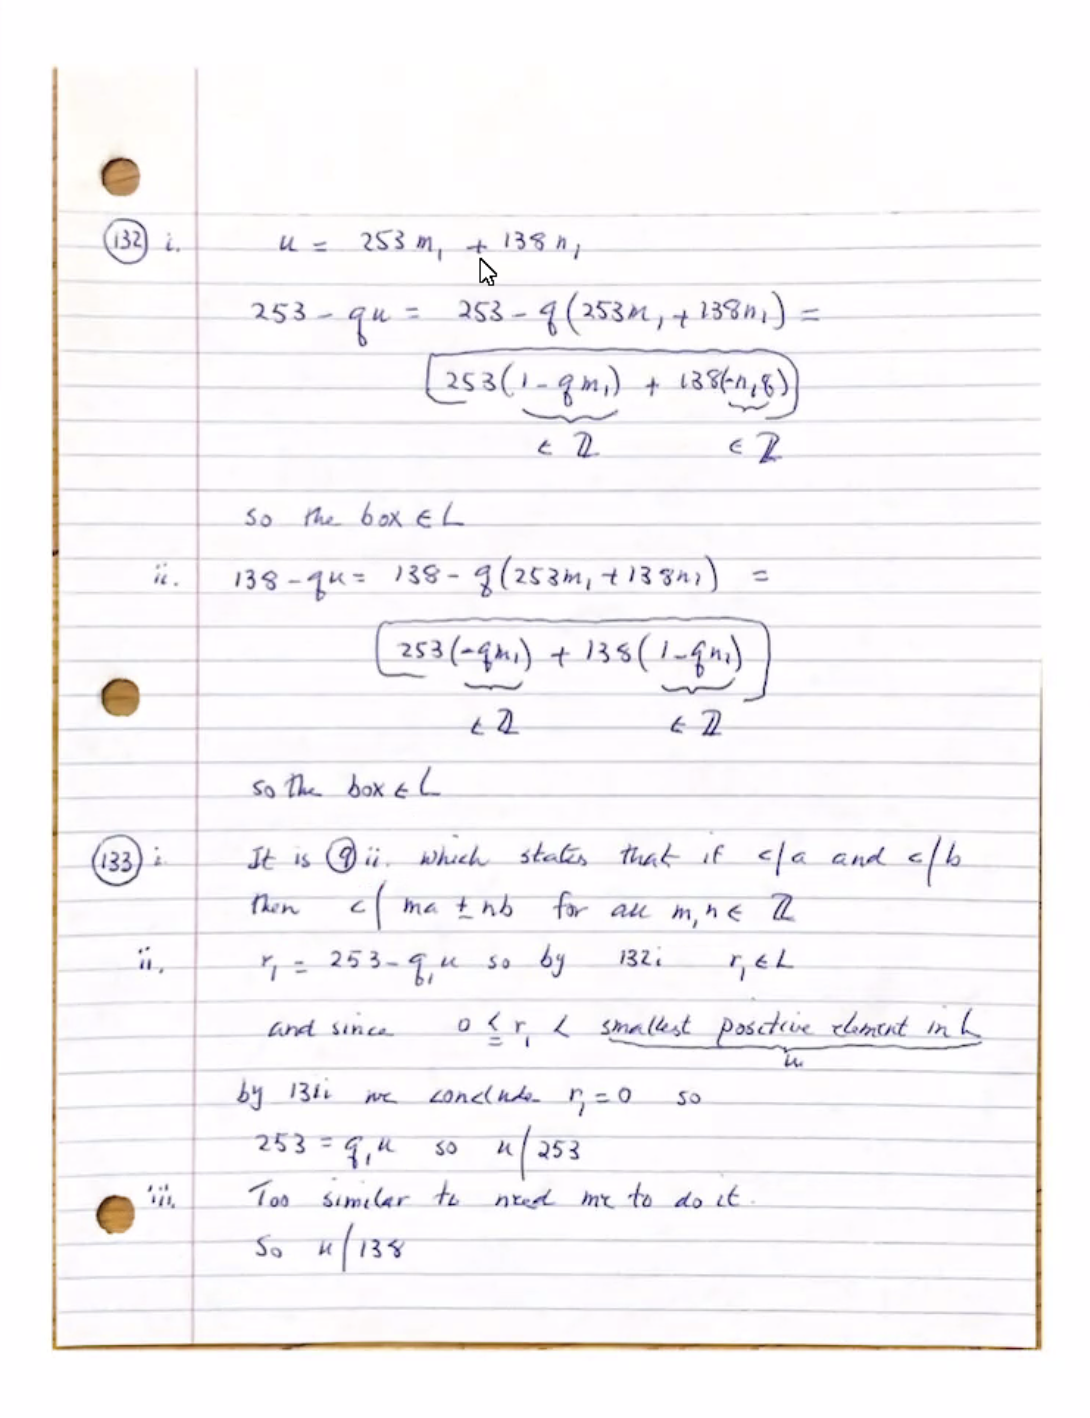 132 i. u = 253 m₁ + 138 n₁
253 - qu = 253 - q(253m₁ + 138n₁) =
253(1 - qm₁) + 138(-n₁q)
∈ ℤ ∈ ℤ
so the box ∈ L
ii. 138 - qu = 138 - q(253m₁ + 138n₁) =
253(-qm₁) + 138(1 - qn₁)
∈ ℤ ∈ ℤ
so the box ∈ L
133 i. It is 9 ii. which states that if c/a and c/b
then c/ma ± nb for all m,n ∈ ℤ
ii. r₁ = 253 - q₁u so by 132i r₁ ∈ L
and since 0 ≤ r₁ < smallest positive element in L
u
by 131i we conclude r₁ = 0 so
253 = q₁u so u/253
iii. Too similar to need me to do it.
So u/138